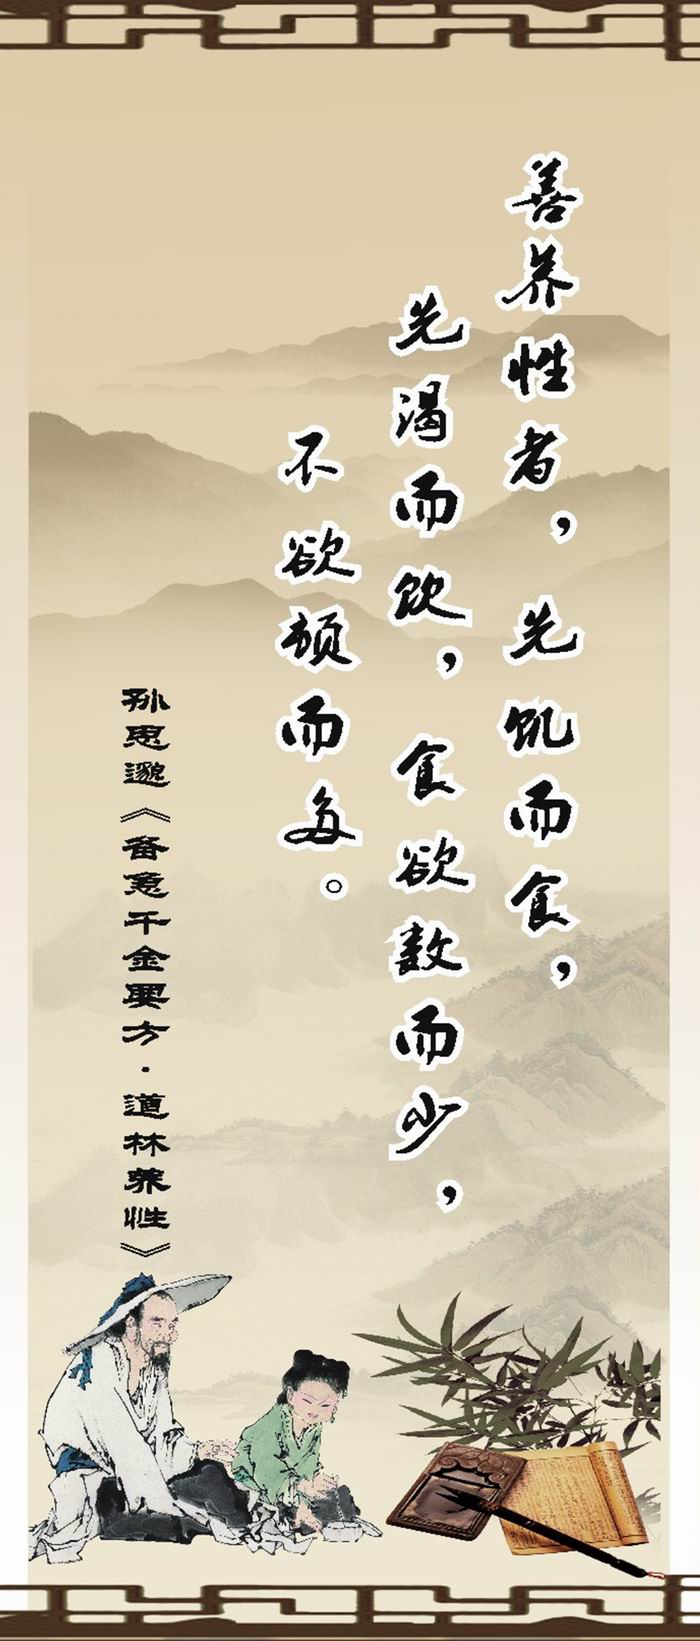 善养性者，先饥而食，
先渴而饮，食欲数而少，
不欲顿而多。
孙思邈《备急千金要方·道林养性》